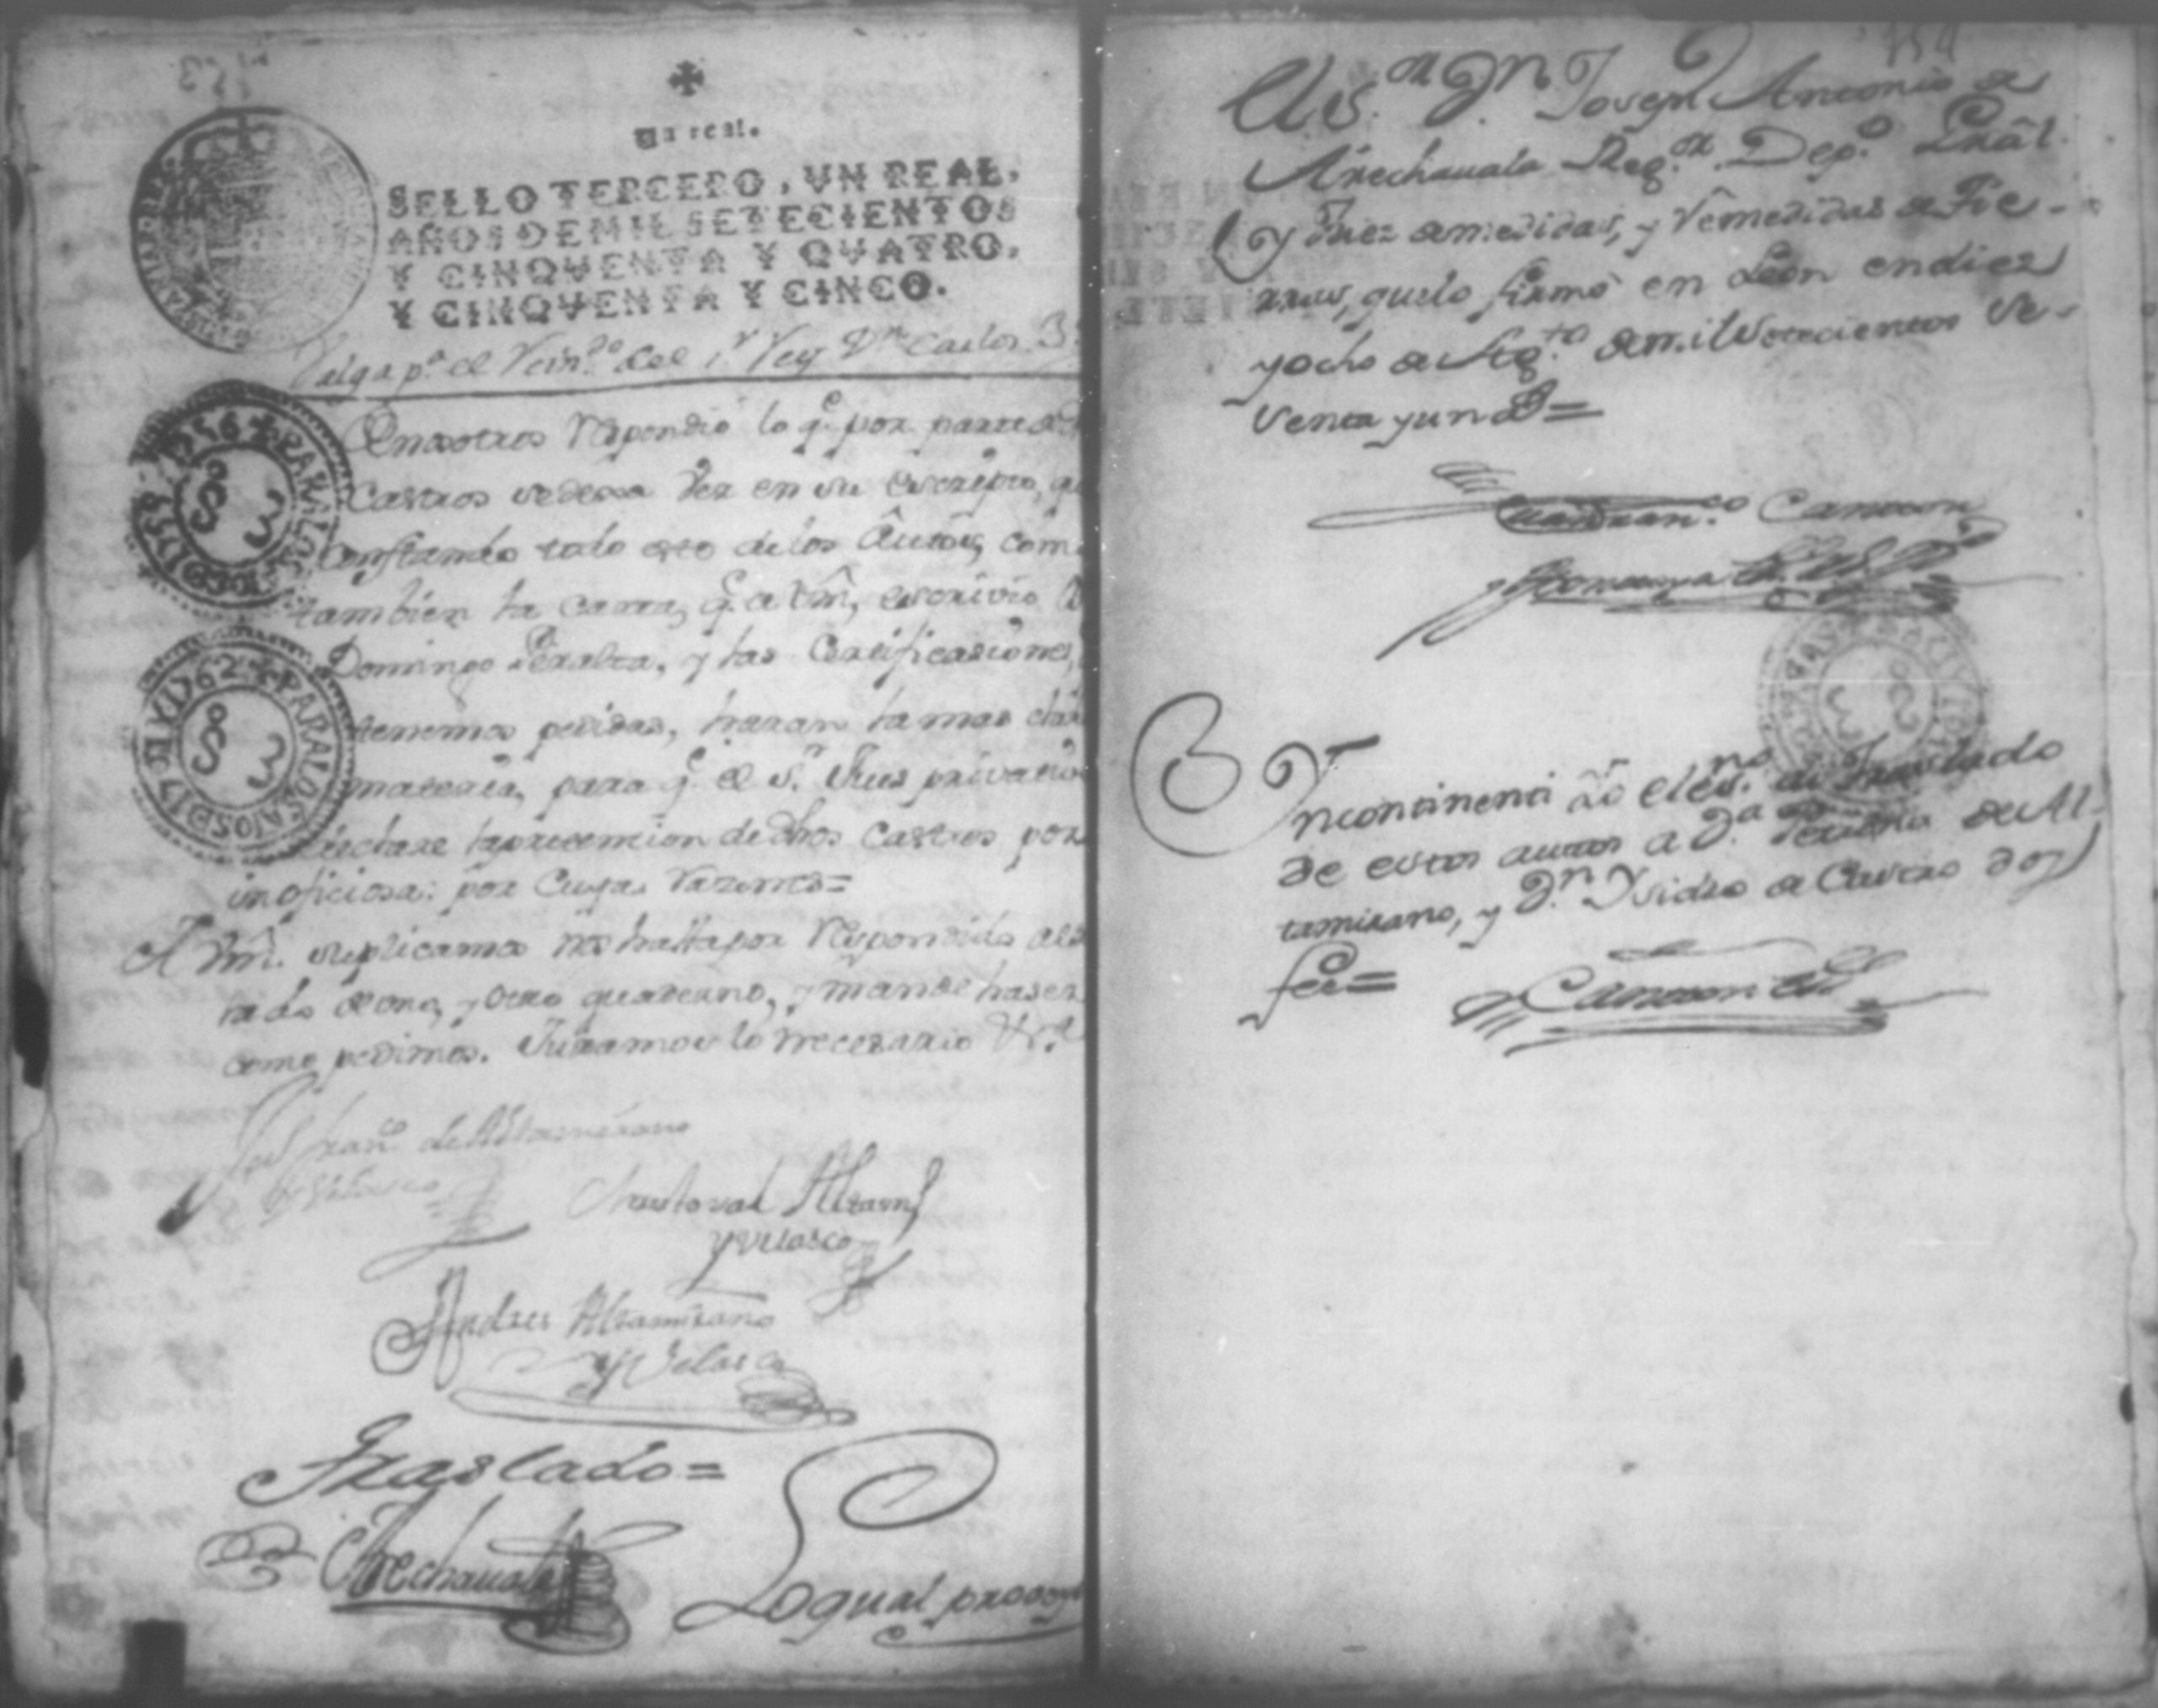 Un real.
SELLO TERCERO, UN REAL,
AÑOS DE MIL SETECIENTOS
Y CINQUENTA Y QUATRO,
Y CINQUENTA Y CINCO.
Valga pª el Reinº del Sr Rey Dn Carlos 3
nosotros respondió lo q̃ por parte de
Castros se dexa ver en su escripto, q
Constando todo esto de los Autos, com
tambien la carta, q̃ a Vm̃, escrivio
Domingo Peralta, y las Certificaciones,
tenemos pedidas, haran la mas cla
materia, para q̃ el Sr. Jues privativo
declare la pretencion de dhos Castros por
inoficiosa: por Cuyas razones=
A Vm̃. suplicamos nos haya por respondido al
lado de uno, y otro quaderno, y mande haser
como pedimos. Juramos lo necesario &ª
Franº de Altamirano
y Velasco
Christoval Altamº
y Velasco
Andres Altamirano
y Velasco
Traslado=
Arechauala
Lo qual proveyó
el Sr. Dn Joseph Antonio de
Arechauala Regr. Depº Gral
y Juez de medidas, y remedidas de Tie-
rras, que lo firmó en León en diez
y ocho de Agto de mil Setecientos se-
senta y un as=
Juan Franco Camton
Incontinenti Yo el esno. di Traslado
de estos autos a Da. de Al-
tamirano, y Dn. Ysidro de Castro doy
fee=
Camton